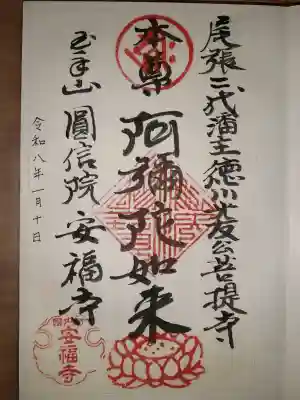 尾張二代藩主徳川光友公菩提寺
本尊 阿彌陀如来
玉手山 圓信院 安福寺
令和八年一月十日
安福寺